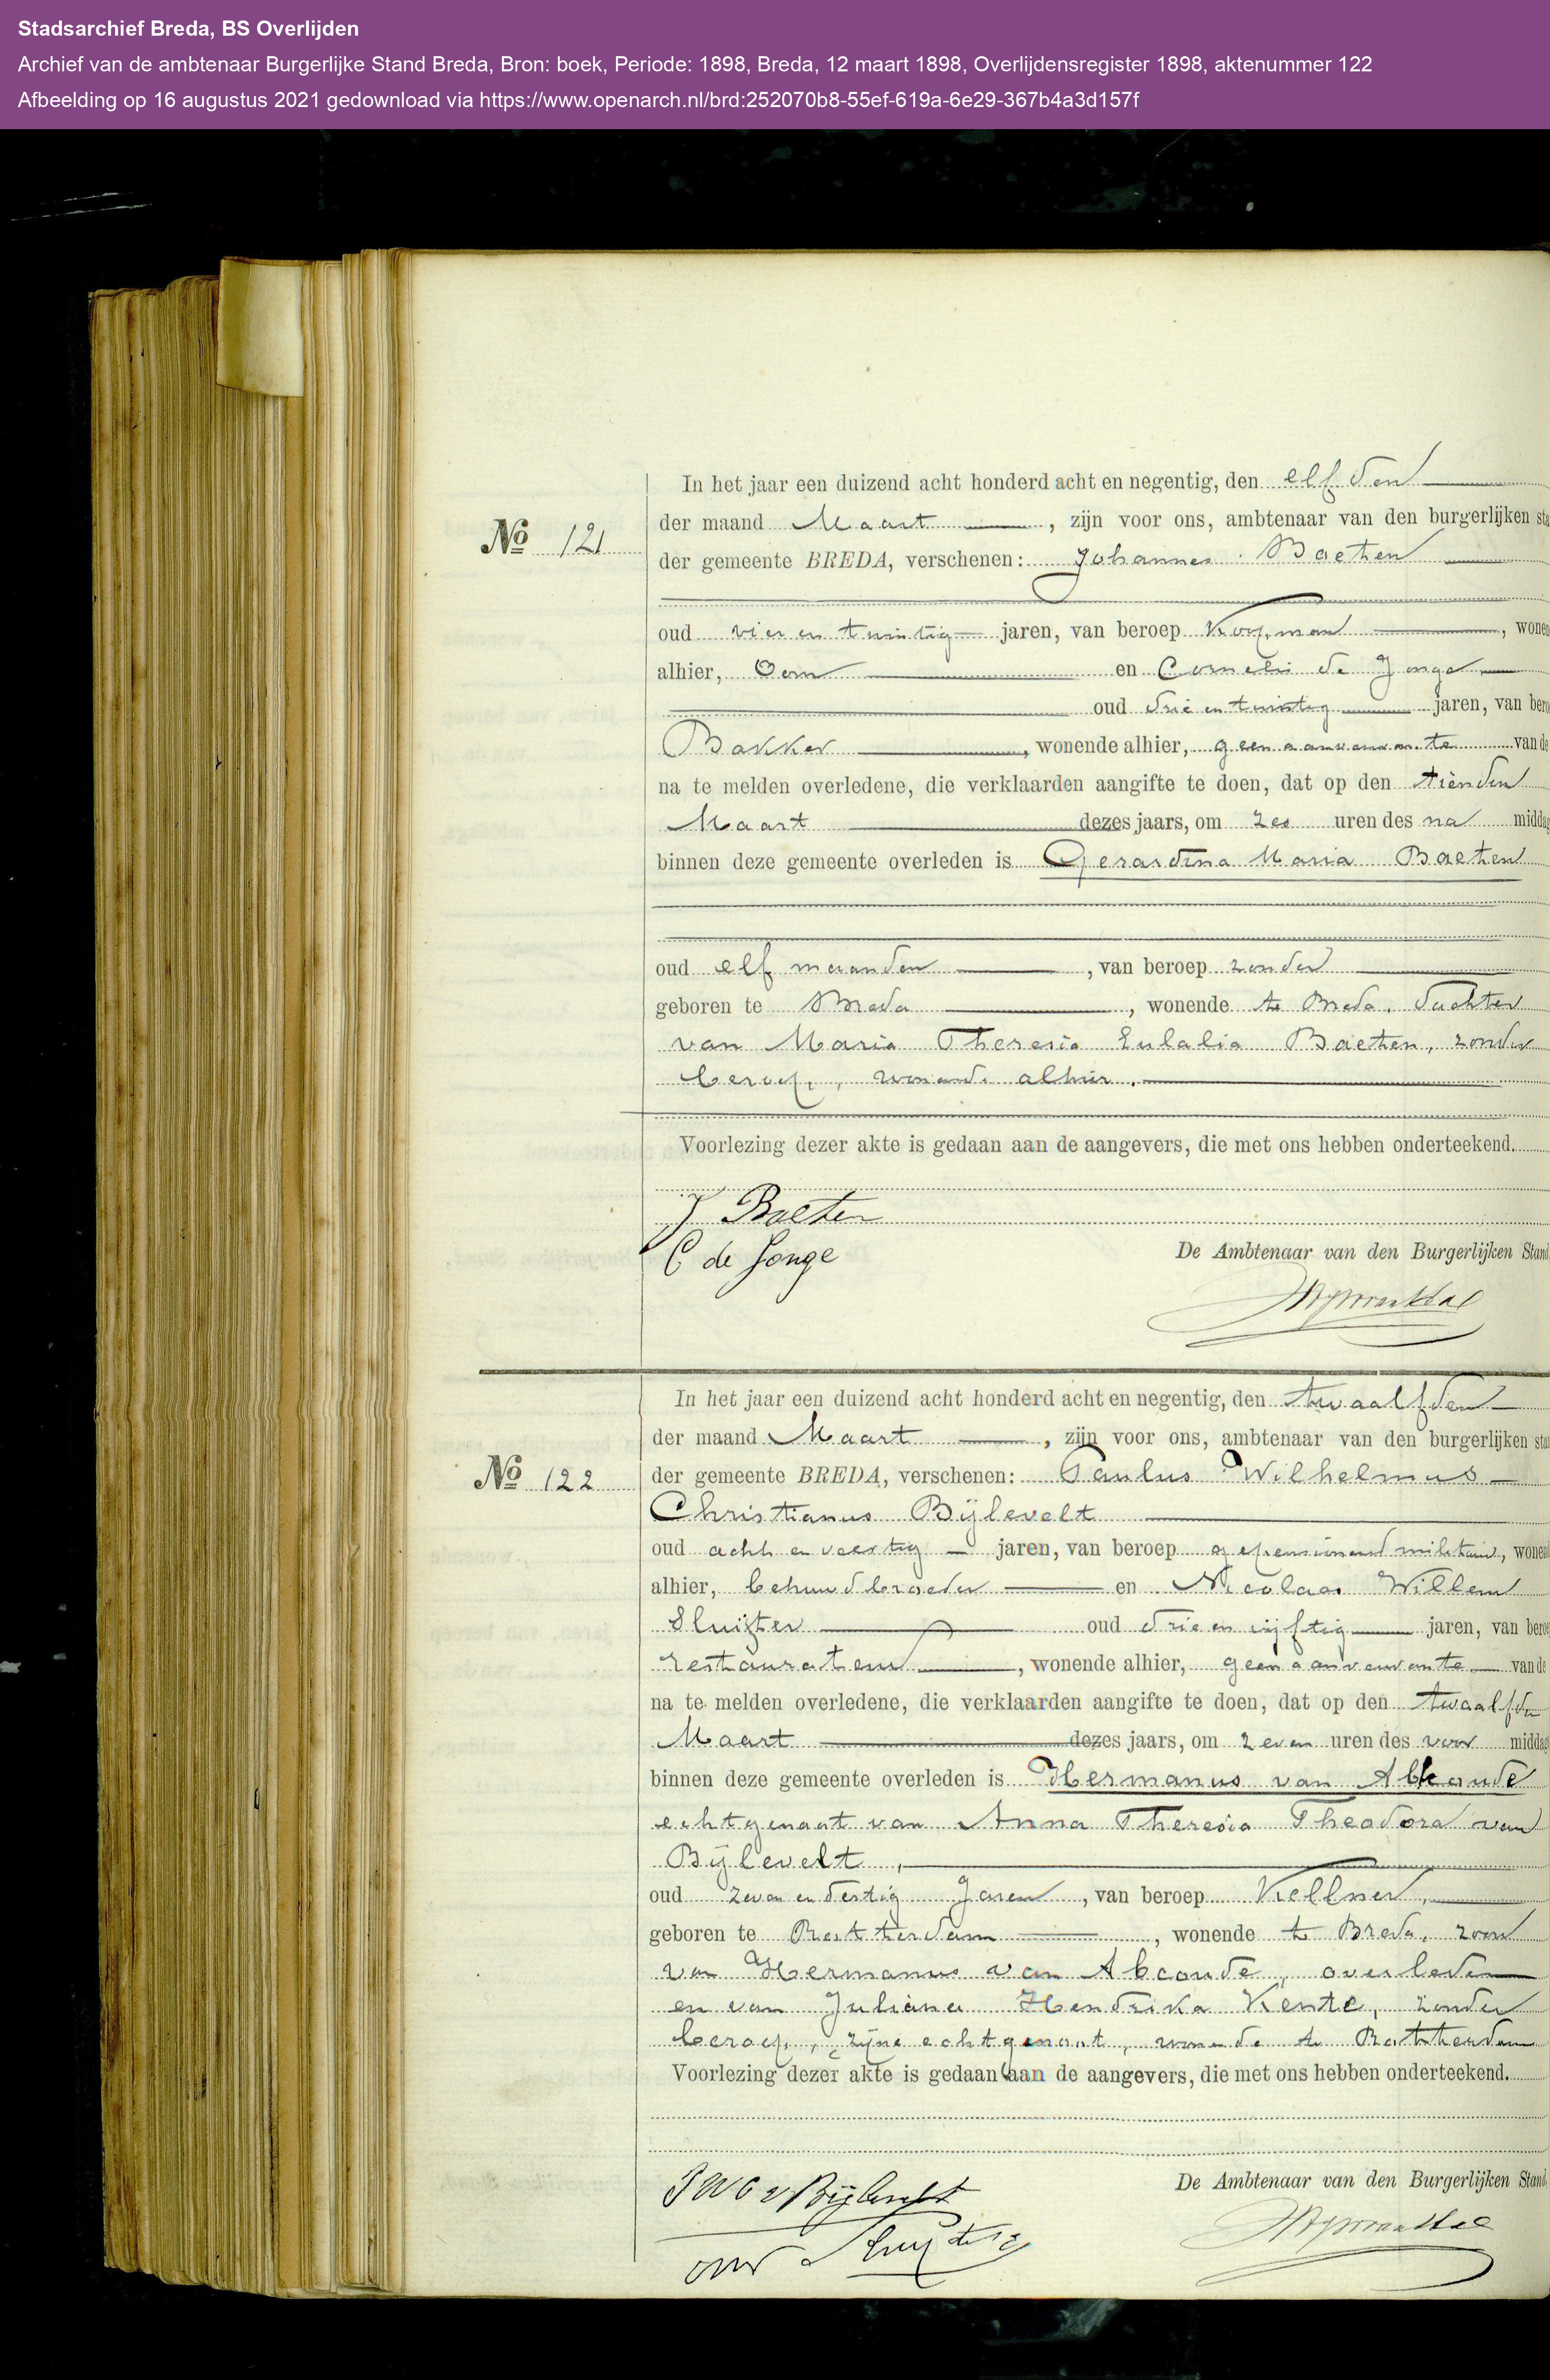 Stadsarchief Breda, BS Overlijden
Archief van de ambtenaar Burgerlijke Stand Breda, Bron: boek, Periode: 1898, Breda, 12 maart 1898, Overlijdensregister 1898, aktenummer 122
Afbeelding op 16 augustus 2021 gedownload via https://www.openarch.nl/brd:252070b8-55ef-619a-6e29-367b4a3d157f
In het jaar een duizend acht honderd acht en negentig, den elfden
der maand Maart, zijn voor ons, ambtenaar van den burgerlijken sta
No 121
der gemeente BREDA, verschenen: Johannes Baeten
oud vier en twintig jaren, van beroep Koopman, wonen
alhier, Oom en Cornelis de Jonge
oud drie en twintig jaren, van bero
Bakker, wonende alhier, geen aanverwante van de
na te melden overledene, die verklaarden aangifte te doen, dat op den tienden
Maart dezes jaars, om zes uren des na middag
binnen deze gemeente overleden is Gerardina Maria Baeten
oud elf maanden, van beroep zonder
geboren te Breda, wonende te Breda, dochter
van Maria Theresia Eulalia Baeten, zonder
beroep, wonende alhier.
Voorlezing dezer akte is gedaan aan de aangevers, die met ons hebben onderteekend.
J Baeten
C de Jonge
De Ambtenaar van den Burgerlijken Stand
In het jaar een duizend acht honderd acht en negentig, den twaalfden
der maand Maart, zijn voor ons, ambtenaar van den burgerlijken stan
No 122
der gemeente BREDA, verschenen: Paulus Wilhelmus
Christianus Bijlevelt
oud acht en veertig jaren, van beroep gepensioneerd militair, wonen
alhier, behuwdbroeder en Nicolaas Willem
Sluijter oud drie en vijftig jaren, van beroe
restaurateur, wonende alhier, geen aanverwante van de
na te melden overledene, die verklaarden aangifte te doen, dat op den twaalfden
Maart dezes jaars, om zeven uren des voor middag
binnen deze gemeente overleden is Hermanus van Abkoude
echtgenoot van Anna Theresia Theodora van
Bijlevelt,
oud zeven en dertig Jaren, van beroep Kellner,
geboren te Rotterdam, wonende te Breda, zoon
van Hermanus van Abcoude, overleden
en van Juliana Hendrika Kente, zonder
beroep, zijne echtgenoot, wonende te Rotterdam
Voorlezing dezer akte is gedaan aan de aangevers, die met ons hebben onderteekend.
De Ambtenaar van den Burgerlijken Stand,
P W C v Bijlevelt
Sluijter